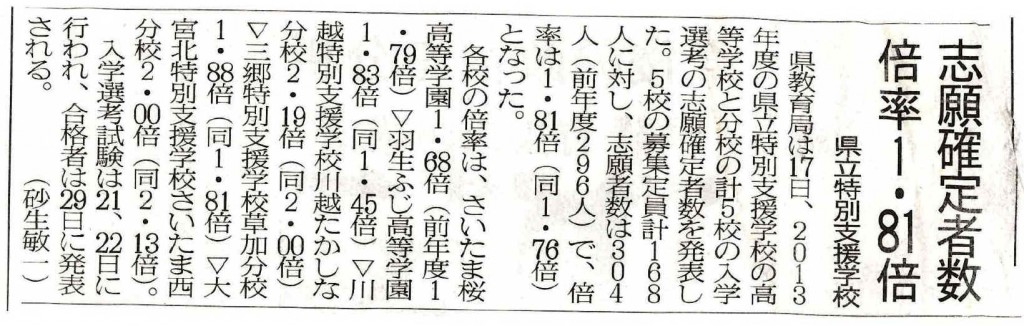 志願確定者数
倍率1・81倍
県立特別支援学校
県教育局は17日、2013
年度の県立特別支援学校の高
等学校と分校の計5校の入学
選考の志願確定者数を発表し
た。5校の募集定員計168
人に対し、志願者数は304
人（前年度296人）で、倍
率は1・81倍（同1・76倍）
となった。
各校の倍率は、さいたま桜
高等学園1・68倍（前年度1
・79倍）▽羽生ふじ高等学園
1・83倍（同1・45倍）▽川
越特別支援学校川越たかしな
分校2・19倍（同2・00倍）
▽三郷特別支援学校草加分校
1・88倍（同1・81倍）▽大
宮北特別支援学校さいたま西
分校2・00倍（同2・13倍）。
入学選考試験は21、22日に
行われ、合格者は29日に発表
される。
（砂生敏一）